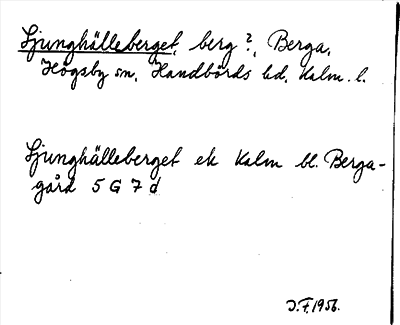 Ljunghälleberget, berg ?, Berga,
Högsby sn, Handbörds hd, Kalm. l.
Ljunghälleberget ek Kalm bl. Berga-
gård 5 G 7 d
J.F. 1956.